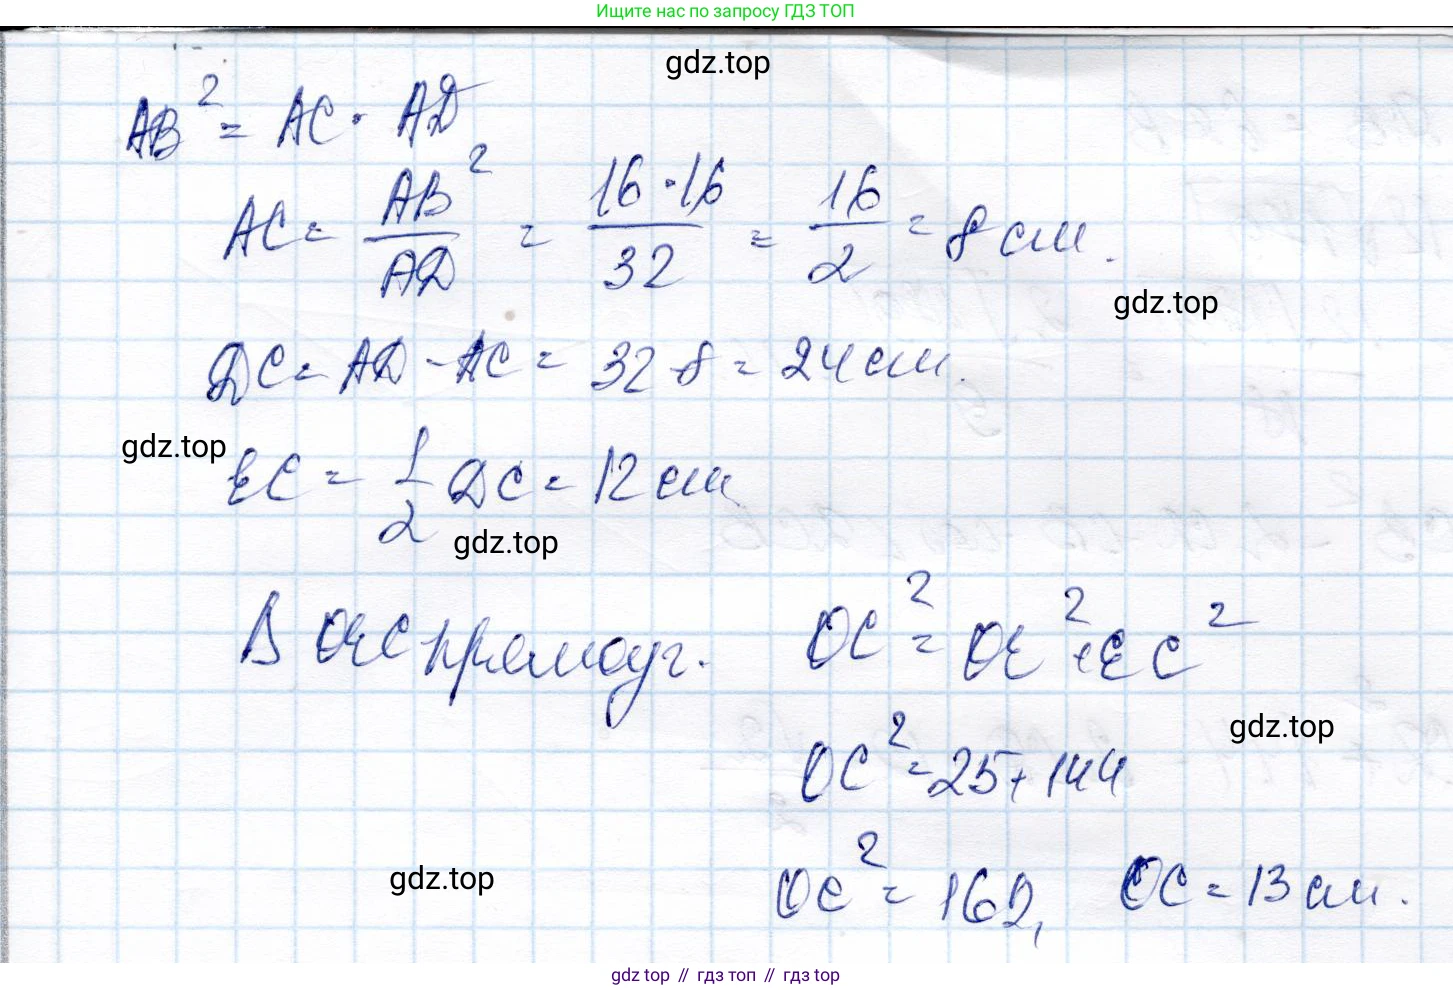 Ищите нас по запросу ГДЗ ТОП
gdz.top
AB² = AC · AD
AC = AB²/AD = 16·16/32 = 16/2 = 8 см.
gdz.top
DC = AD - AC = 32 - 8 = 24 см.
gdz.top
EC = 1/2 DC = 12 см
gdz.top
В OEC прямоуг. OC² = OE² + EC²
gdz.top
OC² = 25 + 144
gdz.top
OC² = 169, OC = 13 см.
gdz top // гдз топ // гдз top